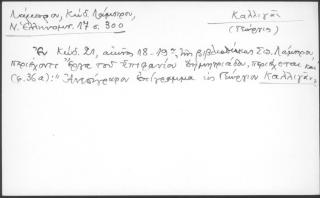 Λάμπρου, Κώδ. Λάμπρου,
Ν. Ελληνομν. 17 σ. 300
Καλλιγᾶ
(Γεώργιο)
Ἐν Κώδ. 21, αἰῶνος 18-19ου τῆς βιβλιοθήκης Σπ. Λάμπρου
περιέχοντι Ἔργα τοῦ Ἐπιφανίου Δημητριάδου, περιέχεται καὶ
(φ. 36α): "Ἀνεπίγραφον ἐπίγραμμα εἰς Γεώργιον Καλλιγᾶν,